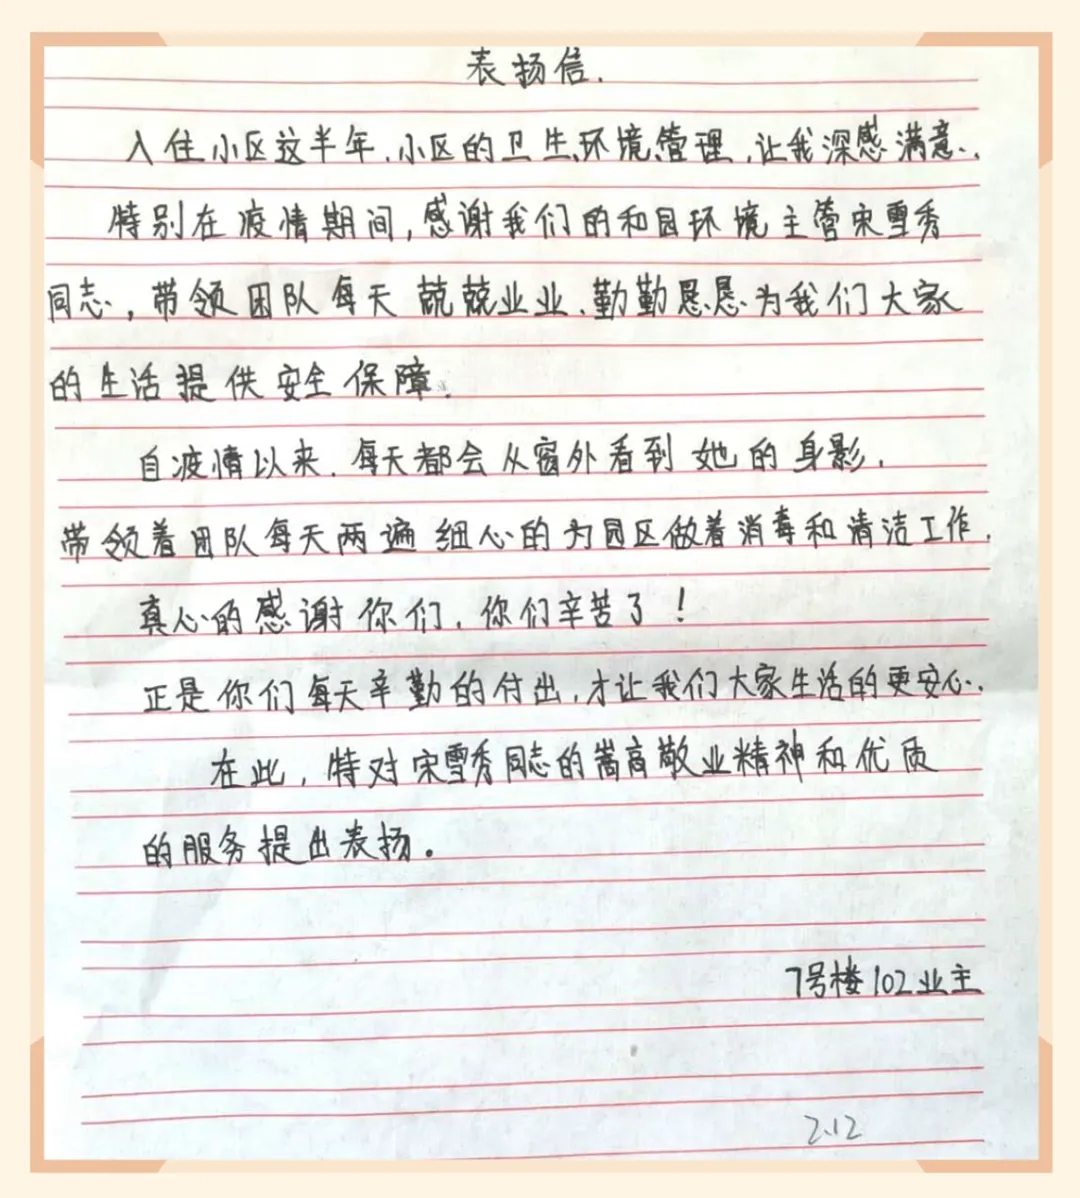 表扬信.
入住小区这半年,小区的卫生、环境、管理,让我深感满意.
特别在疫情期间,感谢我们的和园环境主管宋雪秀
同志,带领团队每天兢兢业业、勤勤恳恳为我们大家
的生活提供安全保障.
自疫情以来,每天都会从窗外看到她的身影,
带领着团队每天两遍细心的为园区做着消毒和清洁工作.
真心的感谢你们,你们辛苦了!
正是你们每天辛勤的付出,才让我们大家生活的更安心.
在此,特对宋雪秀同志的嵩高敬业精神和优质
的服务提出表扬。
7号楼102业主
2.12